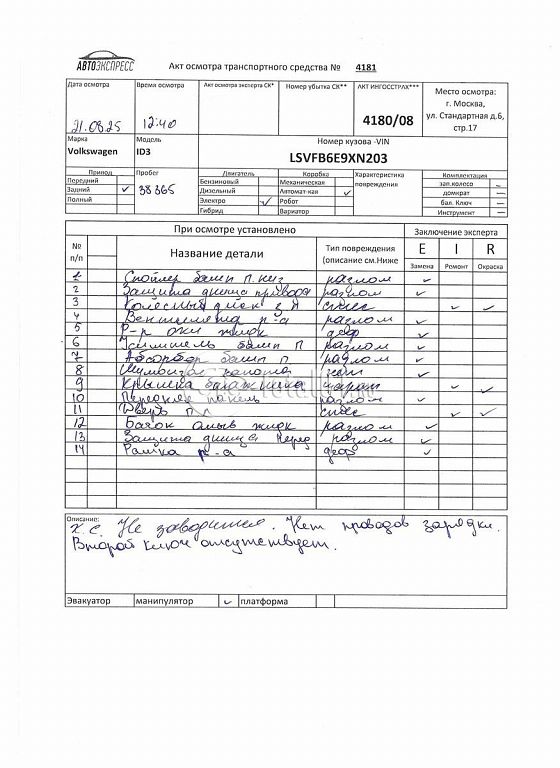 АВТОЭКСПРЕСС
Акт осмотра транспортного средства № 4181
Дата осмотра
21.08.25
Время осмотра
12:40
Акт осмотра эксперта СК*
Номер убытка СК**
АКТ ИНГОССТРАХ***
4180/08
Место осмотра:
г. Москва,
ул. Стандартная д.6,
стр.17
Марка
Volkswagen
Модель
ID3
Номер кузова -VIN
LSVFB6E9XN203
Привод
Передний
Задний ✓
Полный
Пробег
38365
Двигатель
Бензиновый
Дизельный
Электро ✓
Гибрид
Коробка
Механическая
Автомат-кая ✓
Робот
Вариатор
Характеристика
повреждения
Комплектация
зап.колесо –
домкрат –
бал. Ключ –
Инструмент –
При осмотре установлено
Заключение эксперта
№ п/п
Название детали
Тип повреждения
(описание см.Ниже
E
Замена
I
Ремонт
R
Окраска
1 Спойлер бамп п. низ разлом ✓
2 Защита днища привода разлом ✓
3 Колесный диск з л спес ✓ ✓
4 Вентилятор р-а разлом ✓
5 Р-р охл жидк деф ✓
6 Усилитель бамп п разлом ✓
7 Абсорбер бамп п разлом ✓
8 Шумоизол капота ✓
9 Крышка багажника царап ✓ ✓
10 Передняя панель разлом ✓
11 Дверь п л спес ✓ ✓
12 Бачок омыв жидк разлом ✓
13 Защита днища перед разлом ✓
14 Рамка р-а деф ✓
Описание:
Х.С. Не заводится. Нет проводов зарядки.
Второй ключ отсутствует.
Эвакуатор манипулятор ✓ платформа